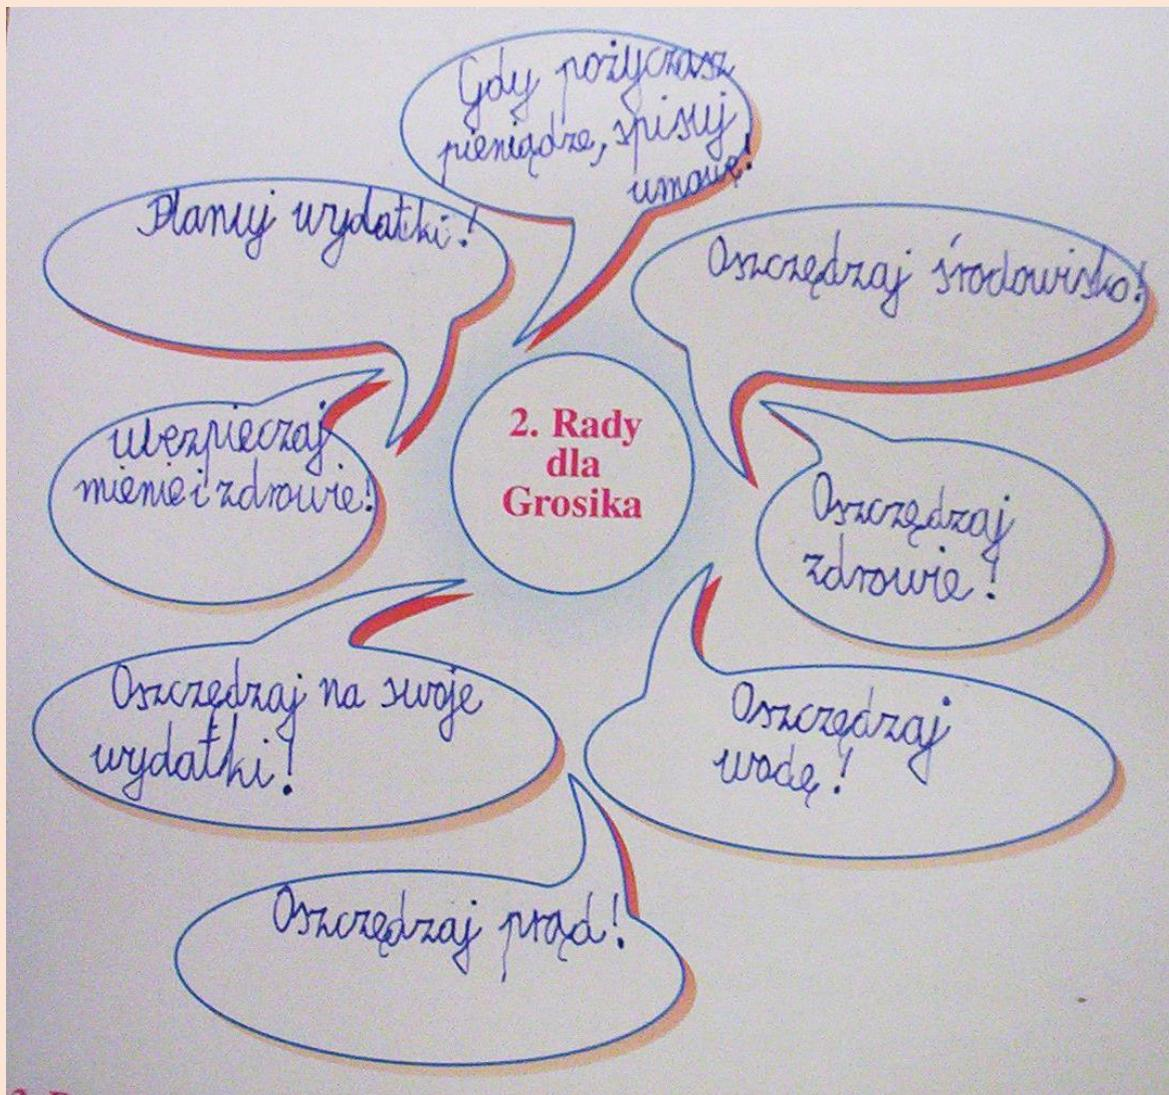 Gdy pożyczasz
pieniądze, spisuj
umowę!
Planuj wydatki!
Oszczędzaj środowisko!
2. Rady
dla
Grosika
ubezpieczaj
mienie i zdrowie!
Oszczędzaj
zdrowie!
Oszczędzaj na swoje
wydatki!
Oszczędzaj
wodę!
Oszczędzaj prąd!